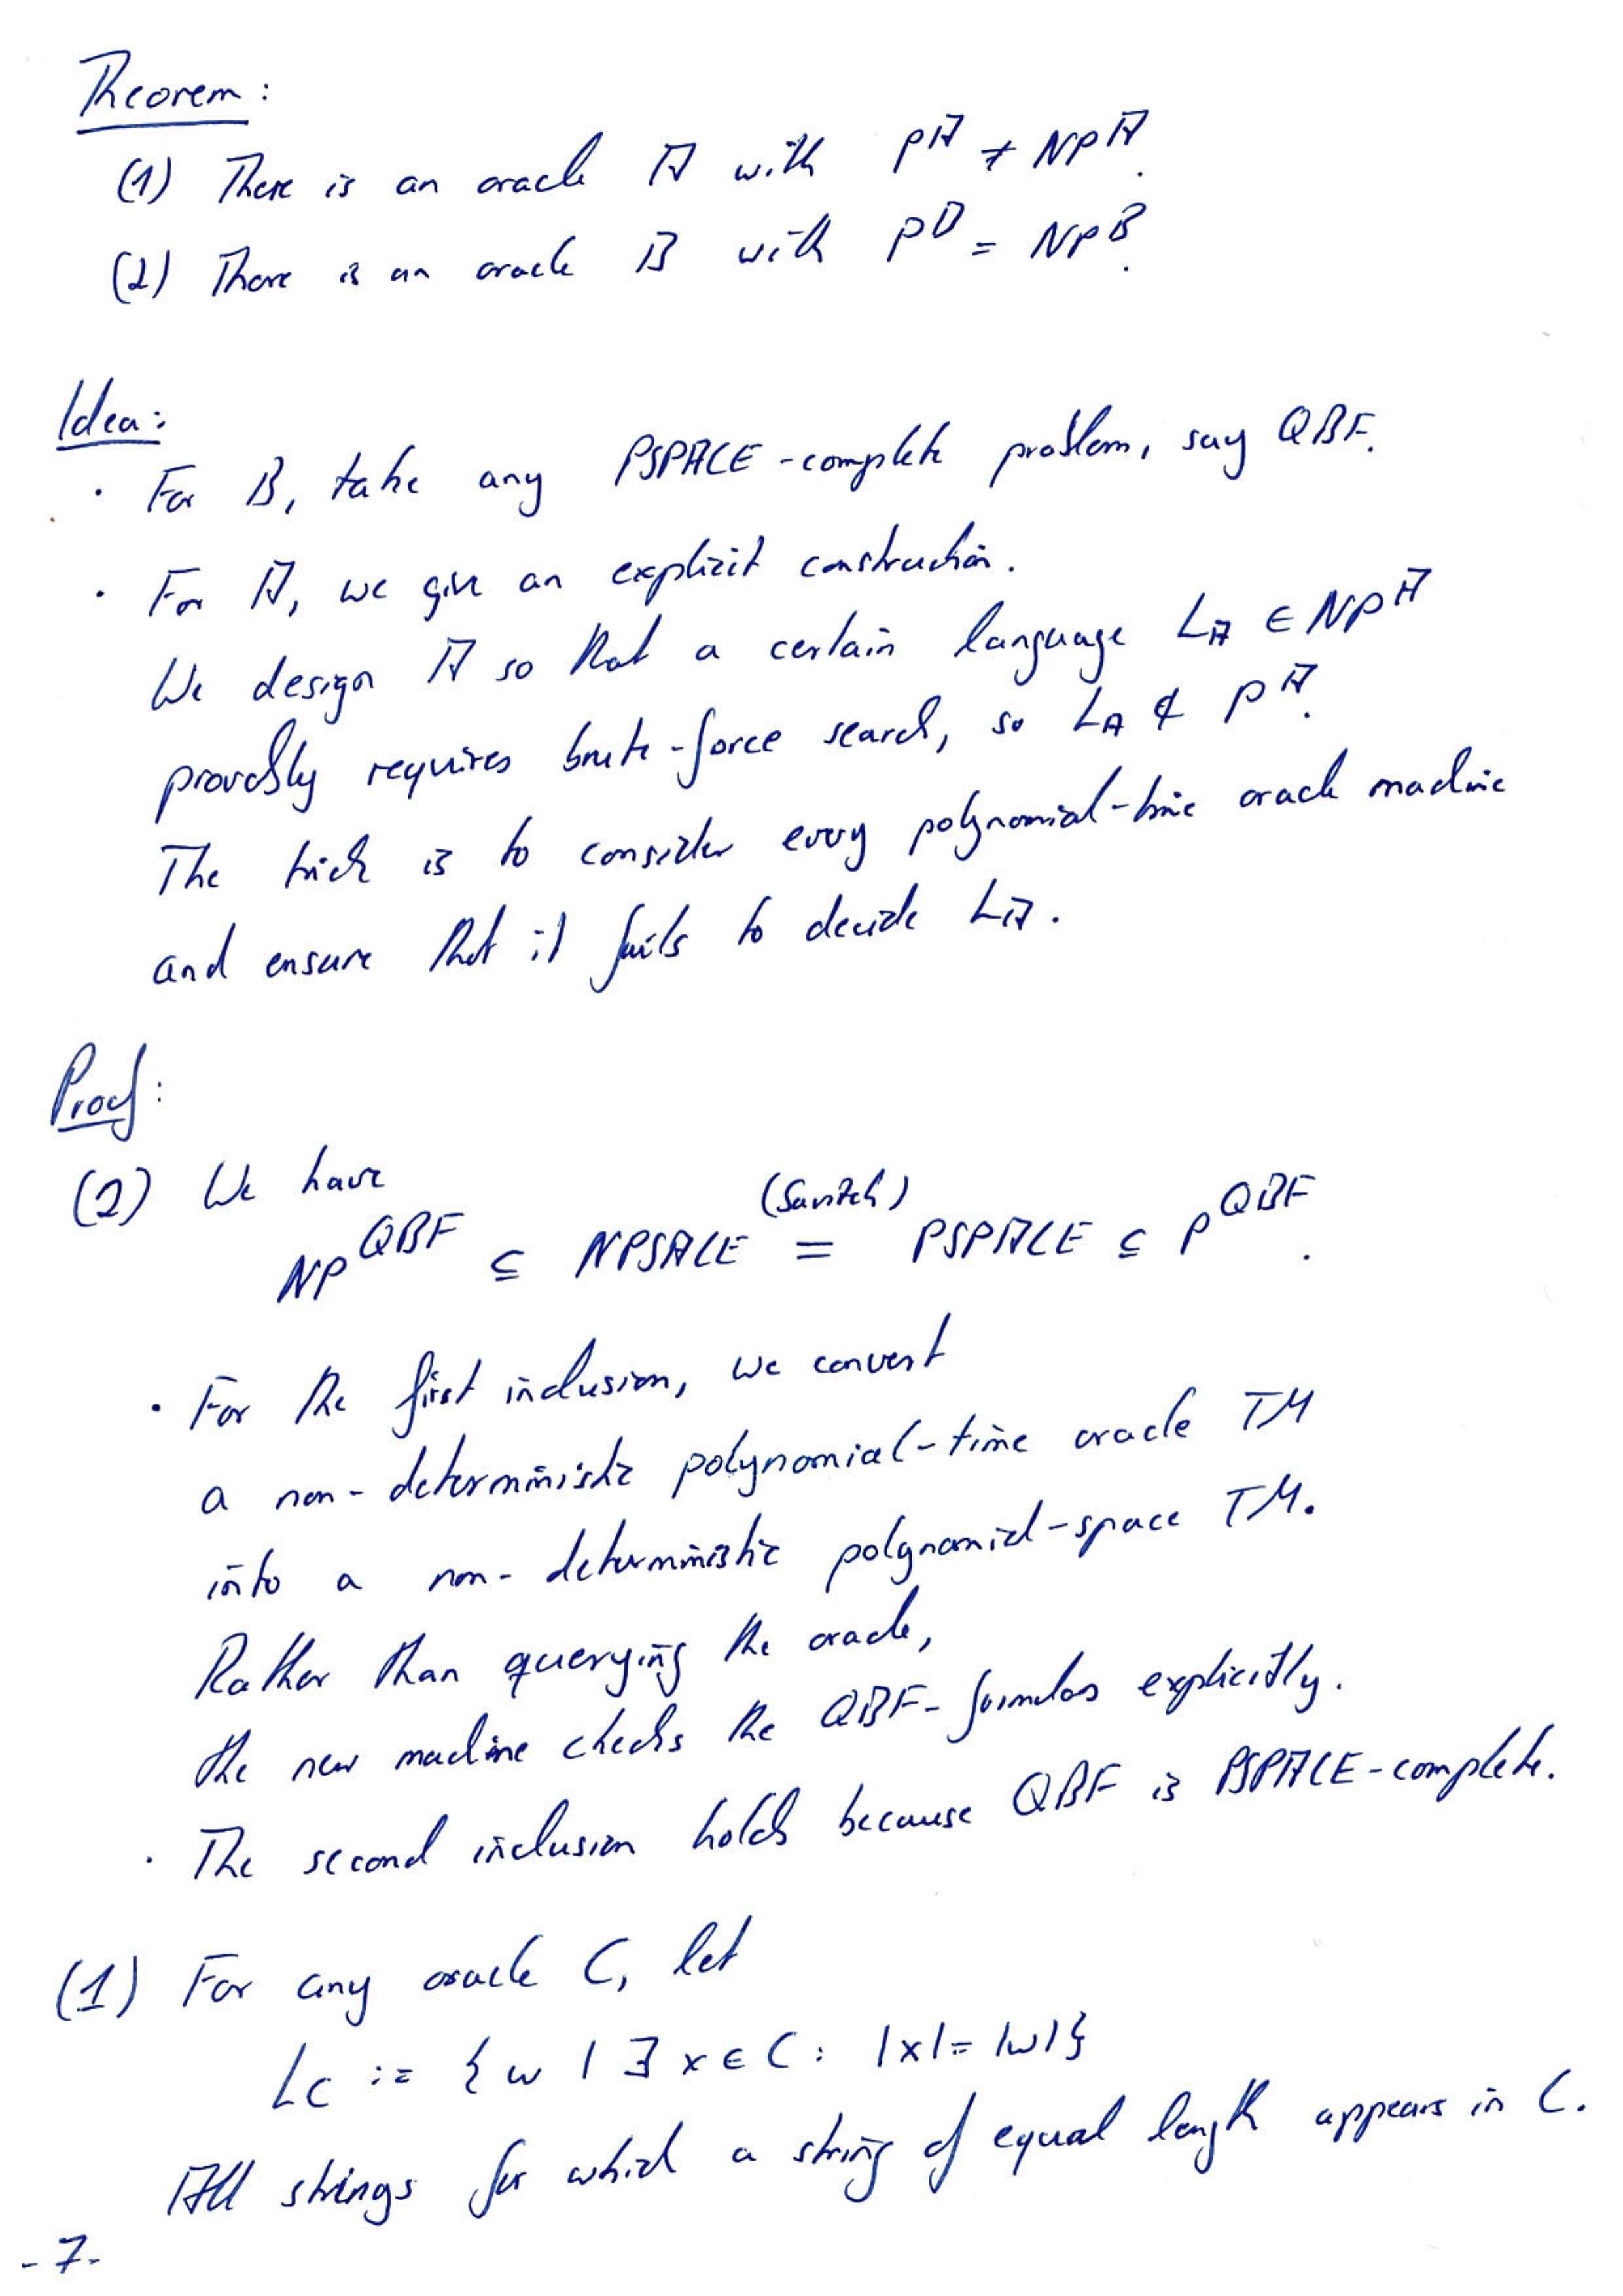 Theorem:
(1) There is an oracle A with P^A ≠ NP^A.
(2) There is an oracle B with P^B = NP^B.
Idea:
· For B, take any PSPACE-complete problem, say QBF.
· For A, we give an explicit construction.
We design A so that a certain language L_A ∈ NP^A
provably requires brute-force search, so L_A ∉ P^A.
The trick is to consider every polynomial-time oracle machine
and ensure that it fails to decide L_A.
Proof:
(2) We have
NP^QBF ⊆ NPSACE (Savitch) = PSPACE ⊆ P^QBF.
· For the first inclusion, we convert
a non-deterministic polynomial-time oracle TM
into a non-deterministic polynomial-space TM.
Rather than querying the oracle,
the new machine checks the QBF-formulas explicitly.
· The second inclusion holds because QBF is PSPACE-complete.
(1) For any oracle C, let
L_C := { w | ∃ x ∈ C : |x| = |w| }
All strings for which a string of equal length appears in C.
- 7 -